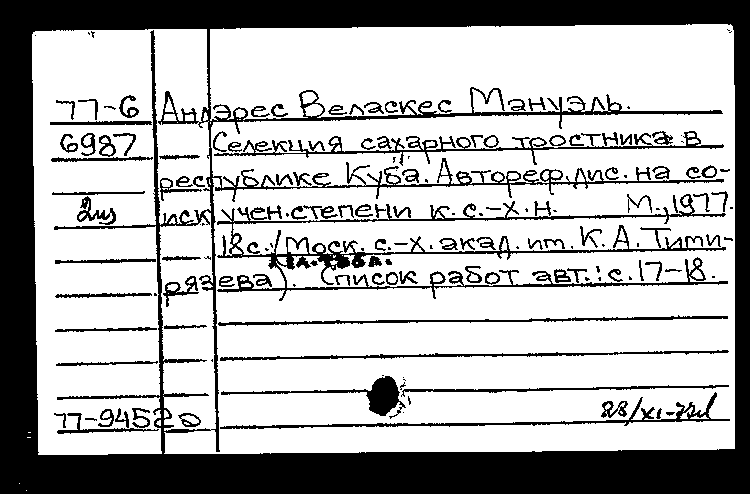 77-6 Андрэс Веласкес Мануэль.
6987 Селекция сахарного тростника в
республике Куба. Автореф. дис. на со-
иск учен. степени к. с.-х. н. М., 1977.
18 с. /Моск. с.-х. акад. им. К. А. Тими-
1 л. табл.
рязева). Список работ авт.: с. 17-18.
77-94520